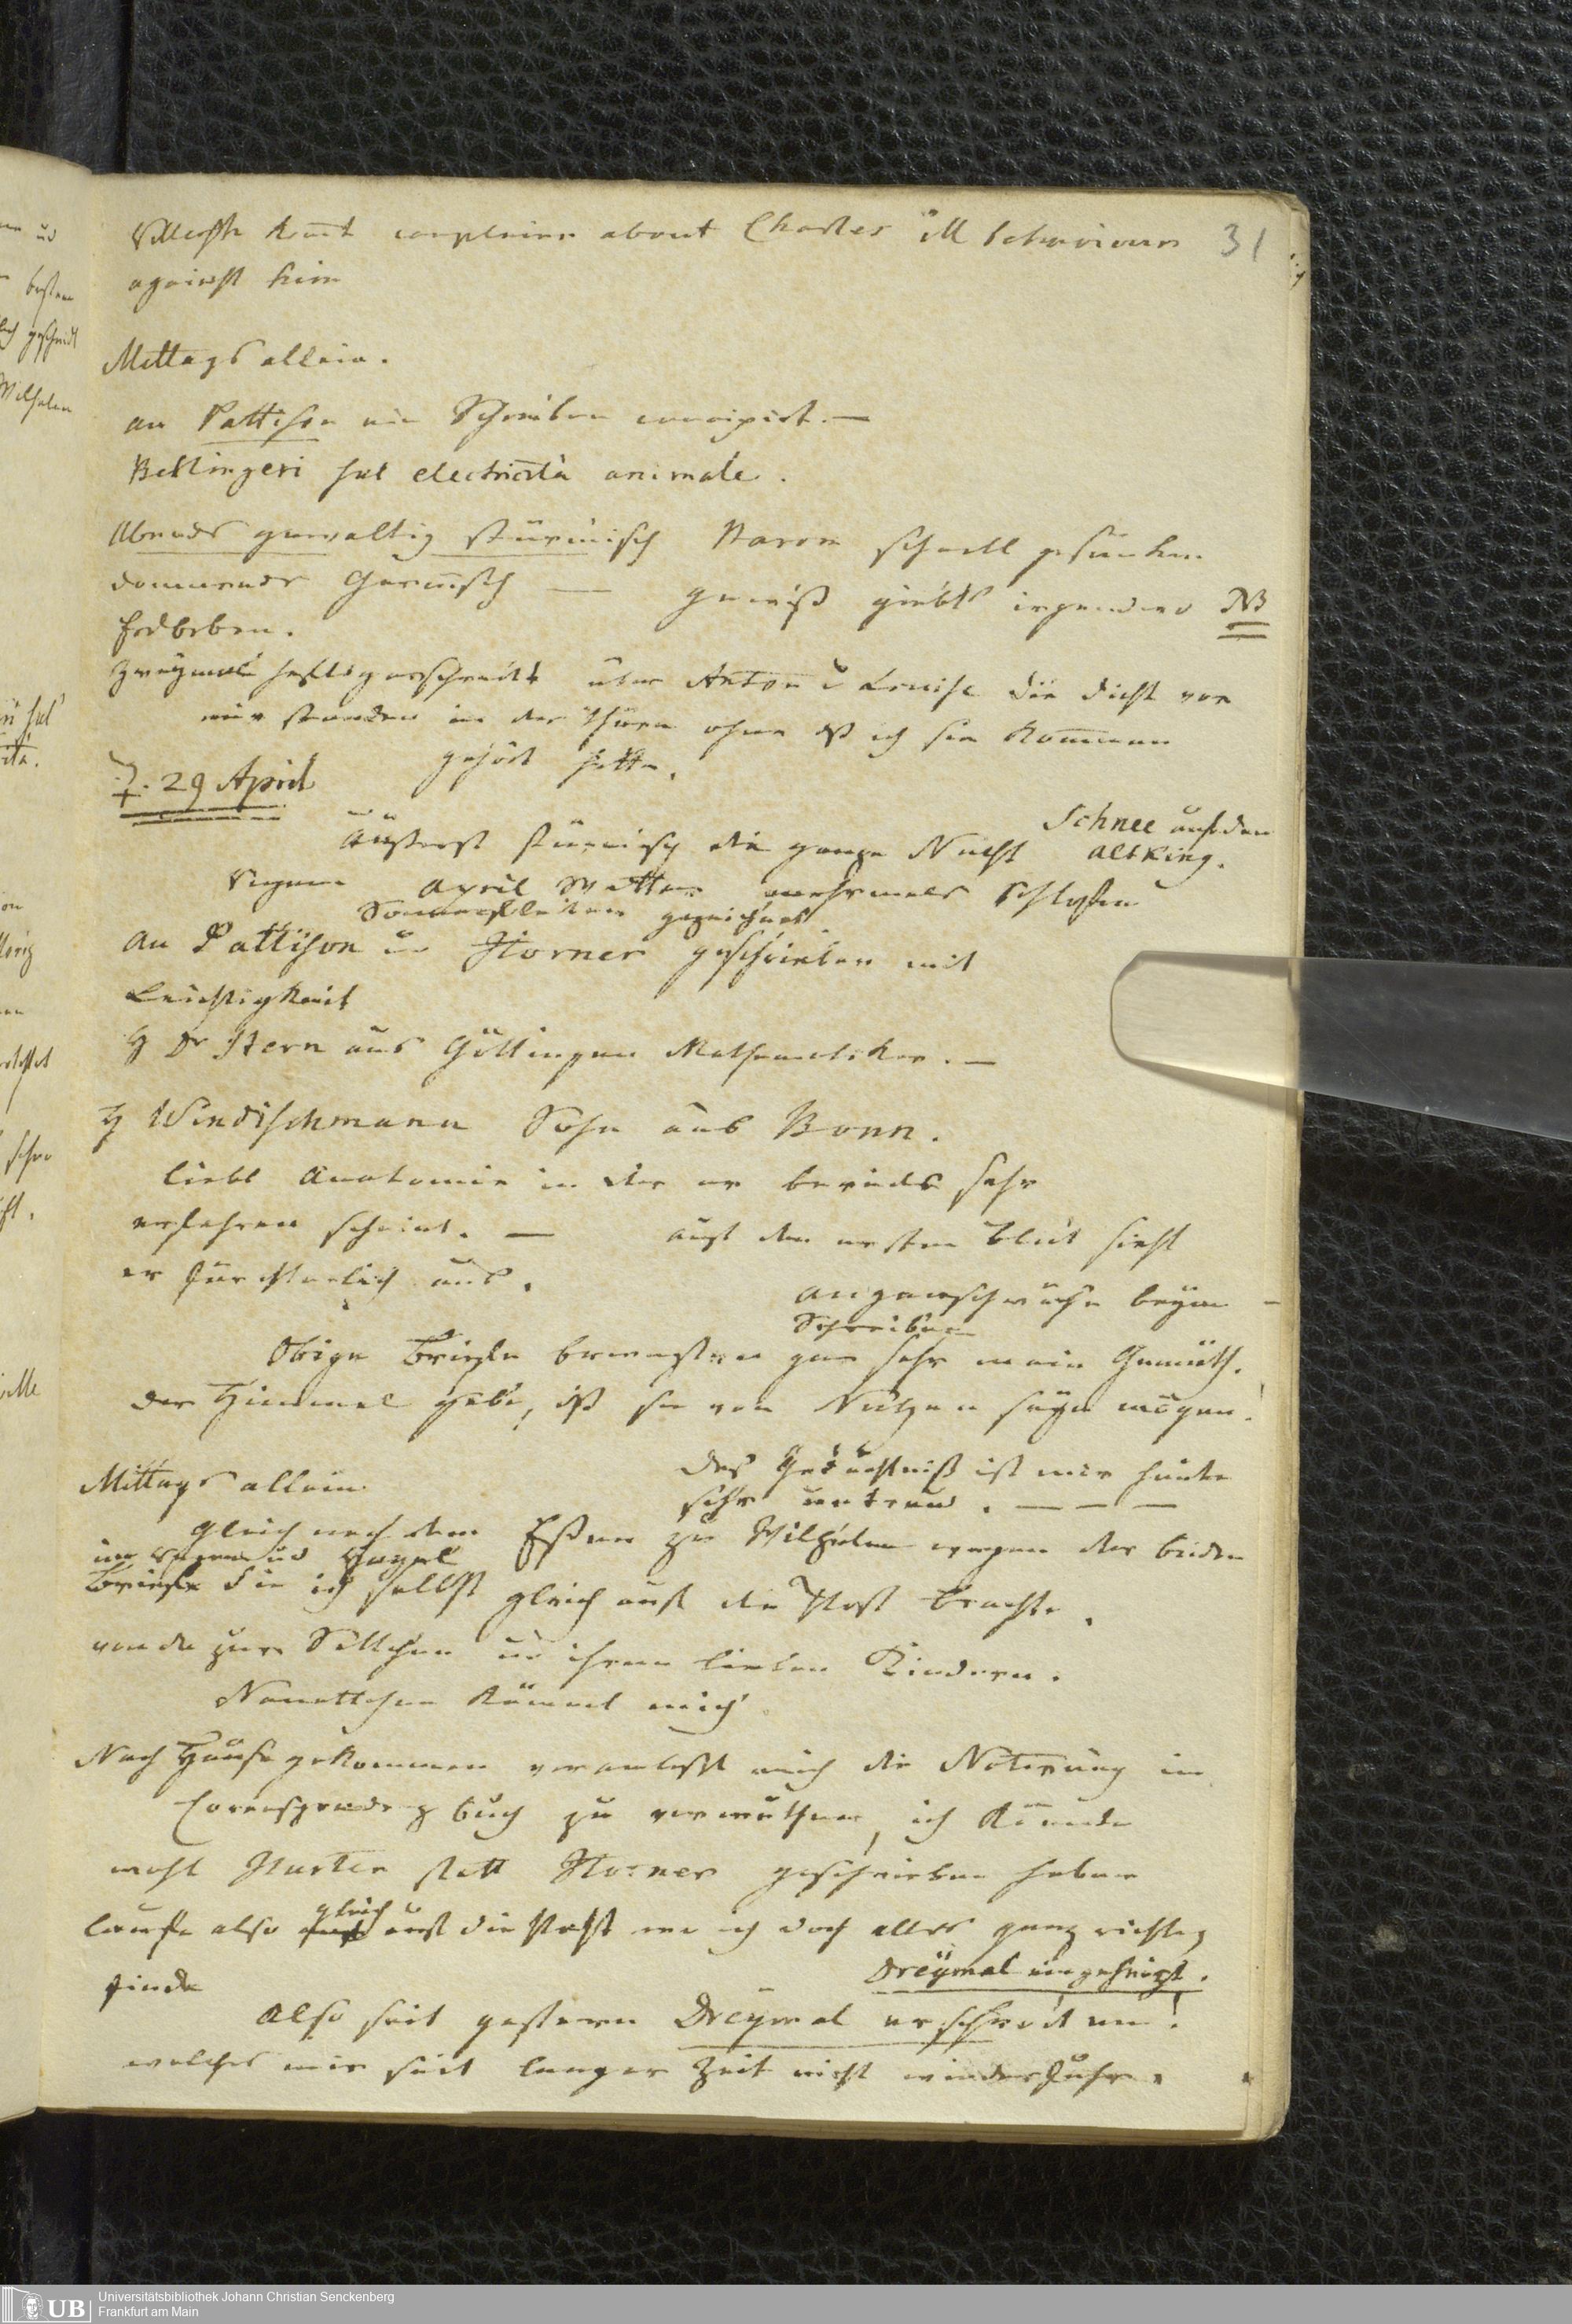 complains about Charles ill behaviour 31
against him
Mittags allein.
an Pattison ein Schreiben concipirt. —
Bellingeri sul electricità animale.
Abends gewaltig stürmisch Barom schnell gesunken
donnernde Geräusch — gewiß giebts irgendwo NB
Erdbeben.
Zweymal heftig erschreckt über Anton u Louise die dicht vor
mir standen in der Thüre ohne dß ich sie kommen
gehört hatte.
♀. 29 April
Schnee auf dem
äußerst stürmisch die ganze Nacht Altking.
Regen April Wetter mehrmals Schloßen
gezeichnet
An Pattison u Horner geschrieben mit
Leichtigkeit
H Dr Stern aus Göttingen Mathematiker. —
H Windischmann Sohn aus Bonn.
liebt Anatomie in der er bereits sehr
erfahren scheint. — auf den ersten Blick sieht
er fürchterlich aus.
Augenschwäche beym
Schreiben
Obige Briefe bewegten gar sehr mein Gemüth.
der Himmel gebe, dß sie von Nutzen seyn mögen!
Mittags allein das Gedächtniß ist mir heute
sehr untreu. — — —
gleich nach dem Essen zu Wilhelm wegen der beiden
im Regen und Hagel
Briefe die ich selbst gleich auf die Post brachte.
von da zur Settchen u ihren lieben Kindern.
Nanettchen kämmt mich
Nach Hause gekommen veranlaßt mich die Notirung im
Correspondenz buch zu vermuthen, ich könnte
wohl Hurter statt Horner geschrieben haben
laufe also gleich auf die Post wo ich doch alles ganz richtig
finde Dreymal eingeheizt.
Also seit gestern Dreymal erschrocken!
welches mir seit langer Zeit nicht wiederfuhr.
Universitätsbibliothek Johann Christian Senckenberg
UB Frankfurt am Main